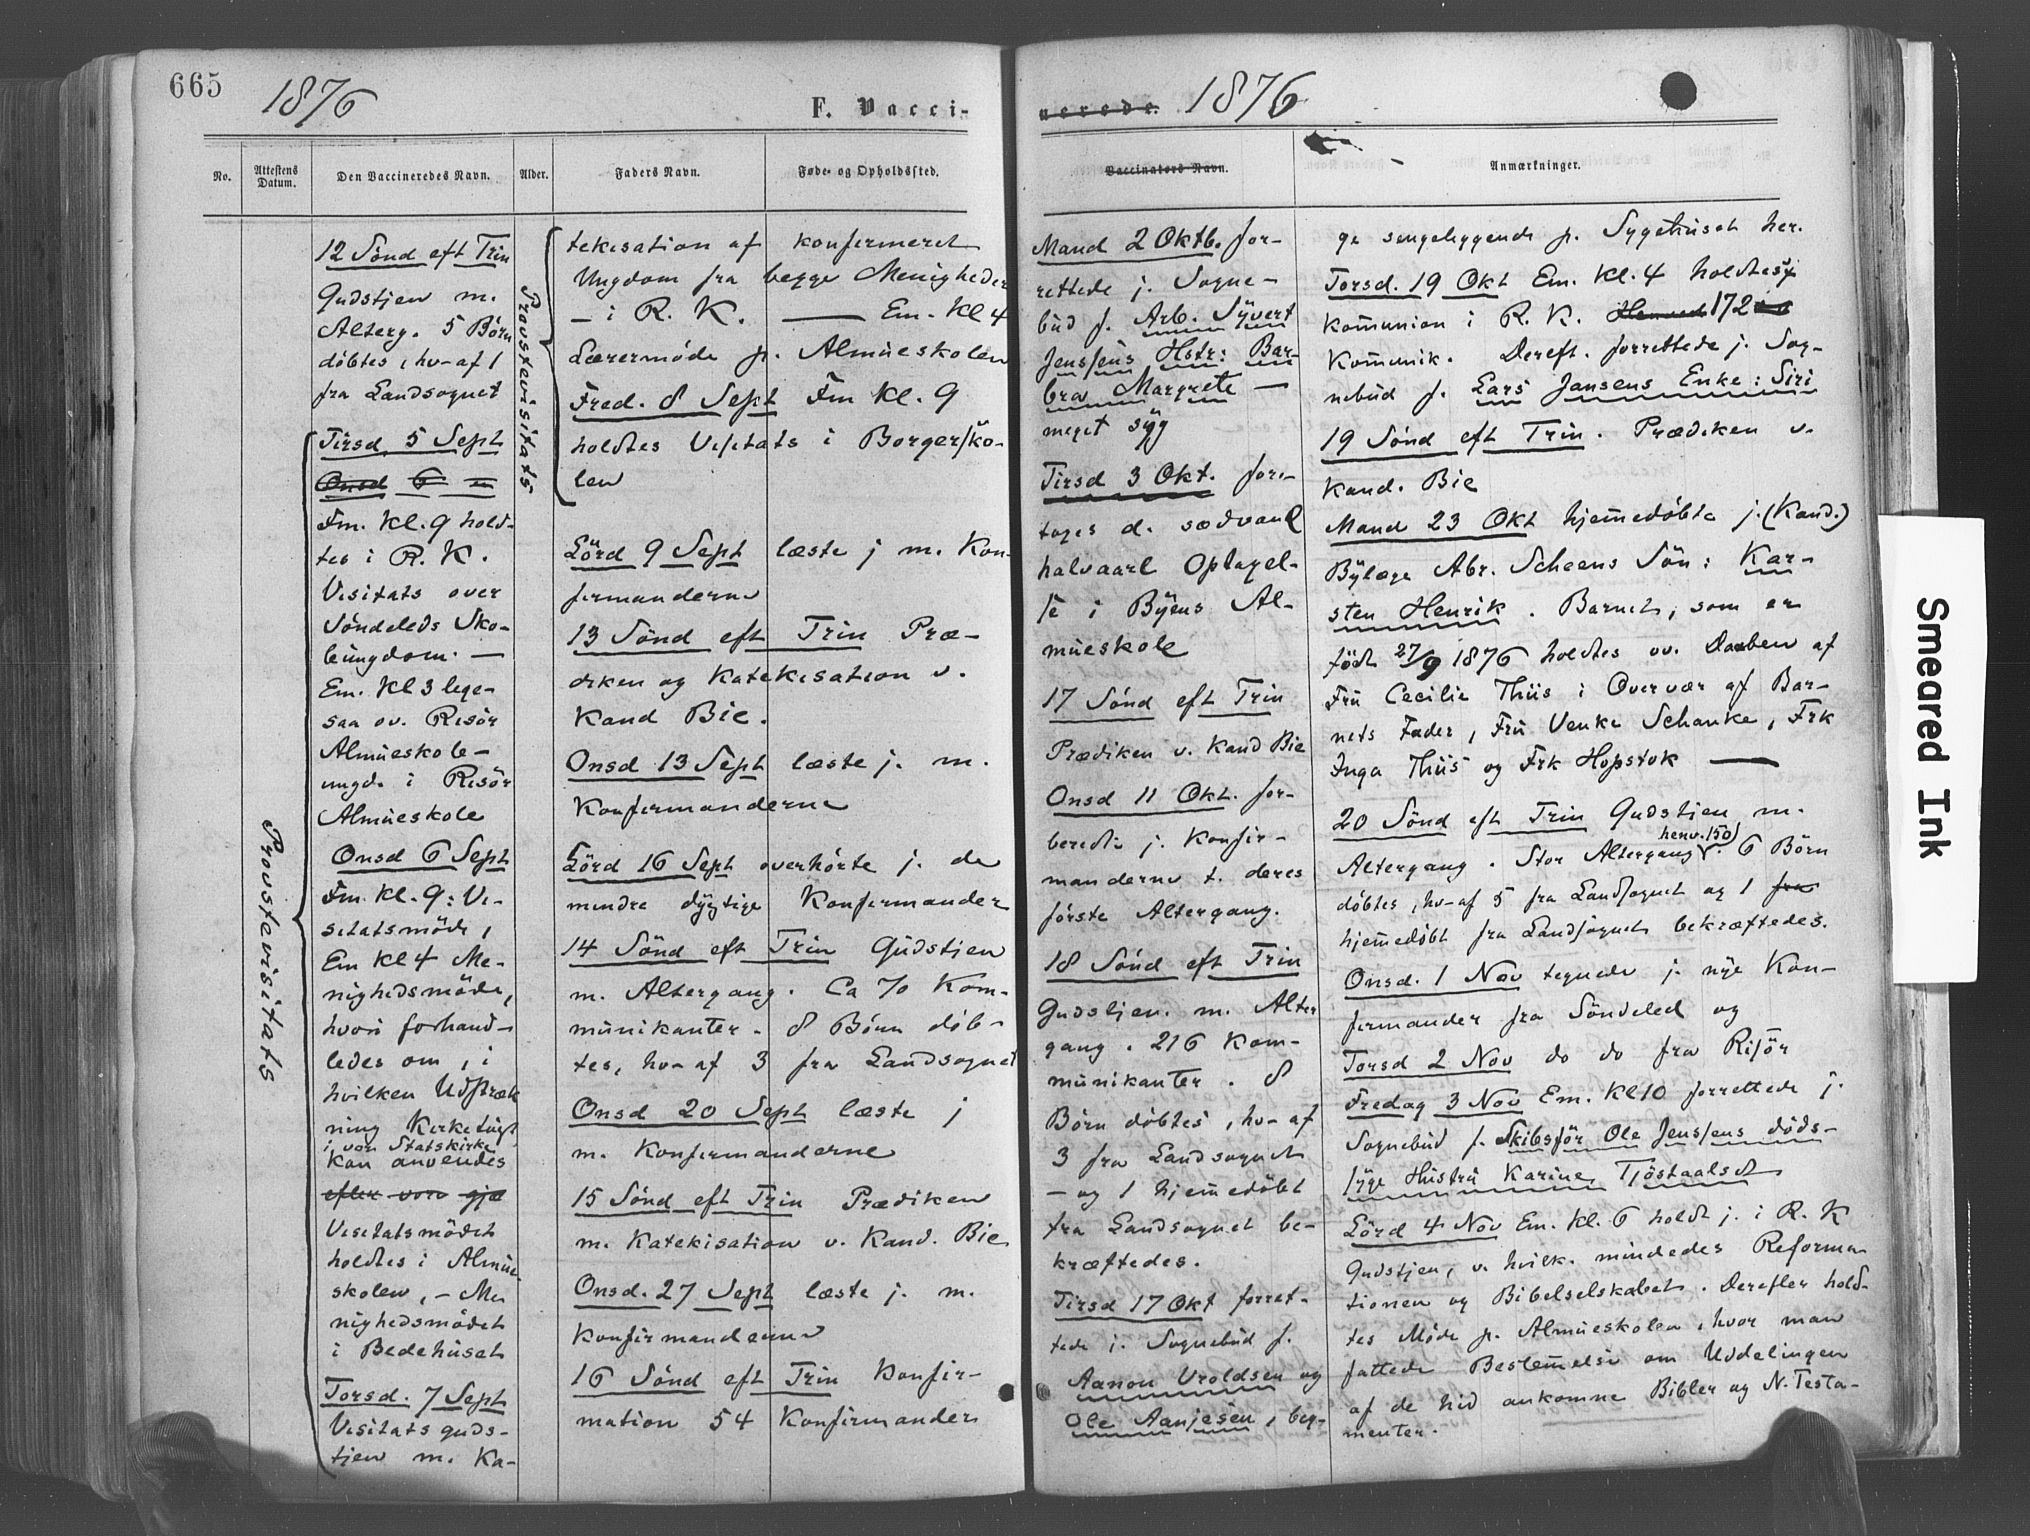 665
1876
F. Vacci-
nerede. 1876
No.
Attestens Datum.
Den Vaccineredes Navn.
Alder.
Faders Navn.
Føde- og Opholdssted.
Vaccinators Navn.
Anmærkninger.
12 Sönd eft Trin
Gudstjen m.
Alterg. 5 Børn
döbtes, hv-af 1
fra Landsognet
Provstevisitats
Tirsd. 5 Sept
Onsd 6
Fm. Kl. 9 hold-
tes i R. K.
Visitats over
Söndeleds Sko-
leungdom. —
Em. Kl 3 lige-
saa ov. Risör
Almueskole-
ungd. i Risör
Almueskole
Onsd 6 Sept
Fm. Kl. 9: Vi-
sitatsmöde,
Em Kl 4 Me-
nighedsmöde,
hvori forhand-
ledes om, i
hvilken Udstræk
ning Kirketugt
i vor Statskirke
kan anvendes
efter vore gjæ
Visitatsmödet
holdtes i Almue-
skolen, - Me-
nighedsmödet
i Bedehuset
Torsd. 7 Sept
Visitatsguds-
tjen m. Ka-
Provstevisitats
tekisation af konfirmeret
Ungdom fra begge Menigheder
— i R. K. — Em. Kl 4
Lærermöde p. Almueskolen
Fred. 8 Sept Fm Kl. 9
holdtes Visitats i Borgersko-
len
Lörd 9 Sept læste j m. Kon-
firmanderne
13 Sönd eft Trin Præ-
diken og Katekisation v.
Kand Bie.
Onsd 13 Sept læste j. m.
Konfirmanderne
Lörd 16 Sept overhörte j. de
mindre dygtige Konfirmander
14 Sönd eft Trin Gudstjen
m. Altergang. Ca 70 Kom-
munikanter. 8 Börn döb-
tes, hv-af 3 fra Landsognet
Onsd 20 Sept læste j
m. Konfirmanderne
15 Sönd eft Trin Prædiken
m. Katekisation v. Kand. Bie
Onsd. 27 Sept læste j. m.
Konfirmanderne
16 Sönd eft Trin Konfir-
mation 54 Konfirmander
Mand 2 Oktb. for-
rettede j. Sogne-
bud f. Arb. Syvert
Jenssens Hstr: Bar-
bra Margrete —
meget syg
Tirsd 3 Okt. fore-
toges d. sædvanl
halvaarl Optagel-
se i Byens Al-
mueskole
17 Sönd eft Trin
Prædiken v. Kand Bie
Onsd 11 Okt. for-
beredte j. Konfir-
manderne t. deres
förste Altergang.
18 Sönd eft Trin
Gudstjen. m. Alter
gang. 216 Kom-
munikanter. 8
Börn döbtes, hv-af
3 fra Landsognet
— og 1 hjemmedöbt
fra Landsognet be-
kræftedes.
Tirsd 17 Okt forret-
tede j. Sognebud f.
Aanon Uroldsen og
Ole Aanjesen, beg-
ge sengeliggende p. Sygehuset her.
Torsd. 19 Okt Em. Kl. 4 holdtes
Kommunion i R. K. Henved 172
Kommunik. Dereft. forrettede j. Sog-
nebud f. Lars Jansens Enke: Siri
19 Sönd eft Trin. Prædiken v.
Kand. Bie
Mand 23 Okt hjemmedöbte j. (Kand.)
Bylæge Abr. Scheens Sön: Kar-
sten Henrik. Barnet, som er
födt 27/9 1876 holdtes ov. Daaben af
Fru Cecilie Thiis i Overvær af Bar-
nets Fader, Fru Venke Schanke, Frk
Inga Thiis og Frk Hopstok —
20 Sönd eft Trin Gudstjen m.
henv. 150)
Altergang. Stor Altergang. 6 Börn
döbtes, hv-af 5 fra Landsognet og 1 fra
hjemmedöbt fra Landsognet bekræftedes.
Onsd. 1 Nov tegnede j. nye Kon-
firmander fra Söndeled og
Torsd 2 Nov do do fra Risör
Fredag 3 Nov Em. Kl 10 forrettede j.
Sognebud f. Skibsför Ole Jenssens döds-
syge Hustru Karine Tjöstaalsdt
Lörd 4 Nov Em. Kl. 6 holdt j. i R. K
Gudstjen, v. hvilk. mindedes Reforma-
tionen og Bibelselskabet. Derefter hold-
tes Möde p. Almueskolen, hvor man
fattede Bestemmelse om Uddelingen
af de hid ankomne Bibler og N. Testa-
menter.
Smeared Ink